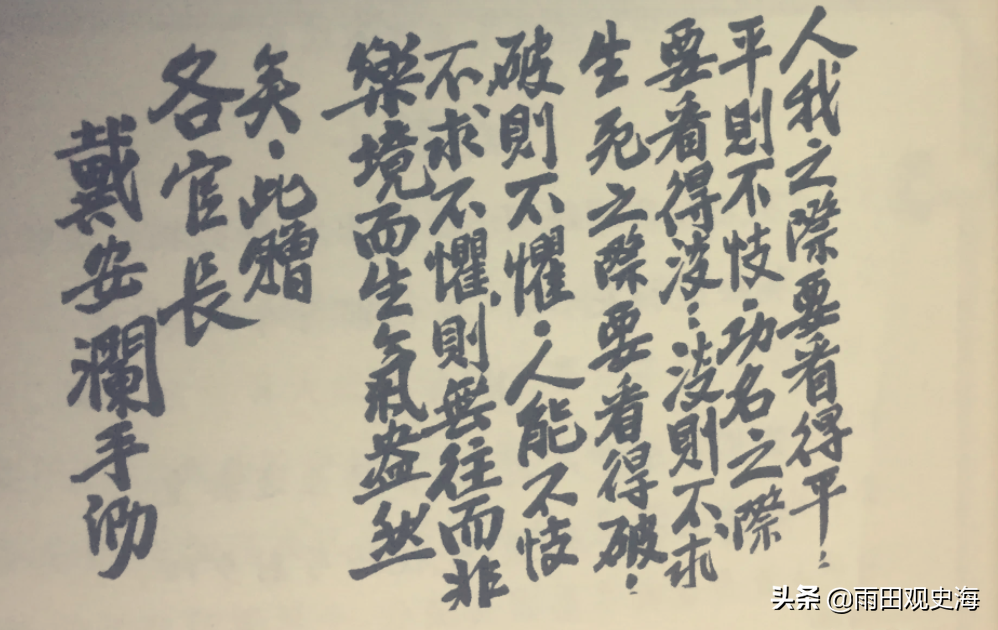 人我之際要看得平：
平則不忮．功名之際
要看得淡：淡則不求
生死之際要看得破．
破則不懼．人能不忮
不求不懼，則無往而非
樂境而生氣盎然
矣．此贈
各官長
戴安瀾手泐
头条 @雨田观史海